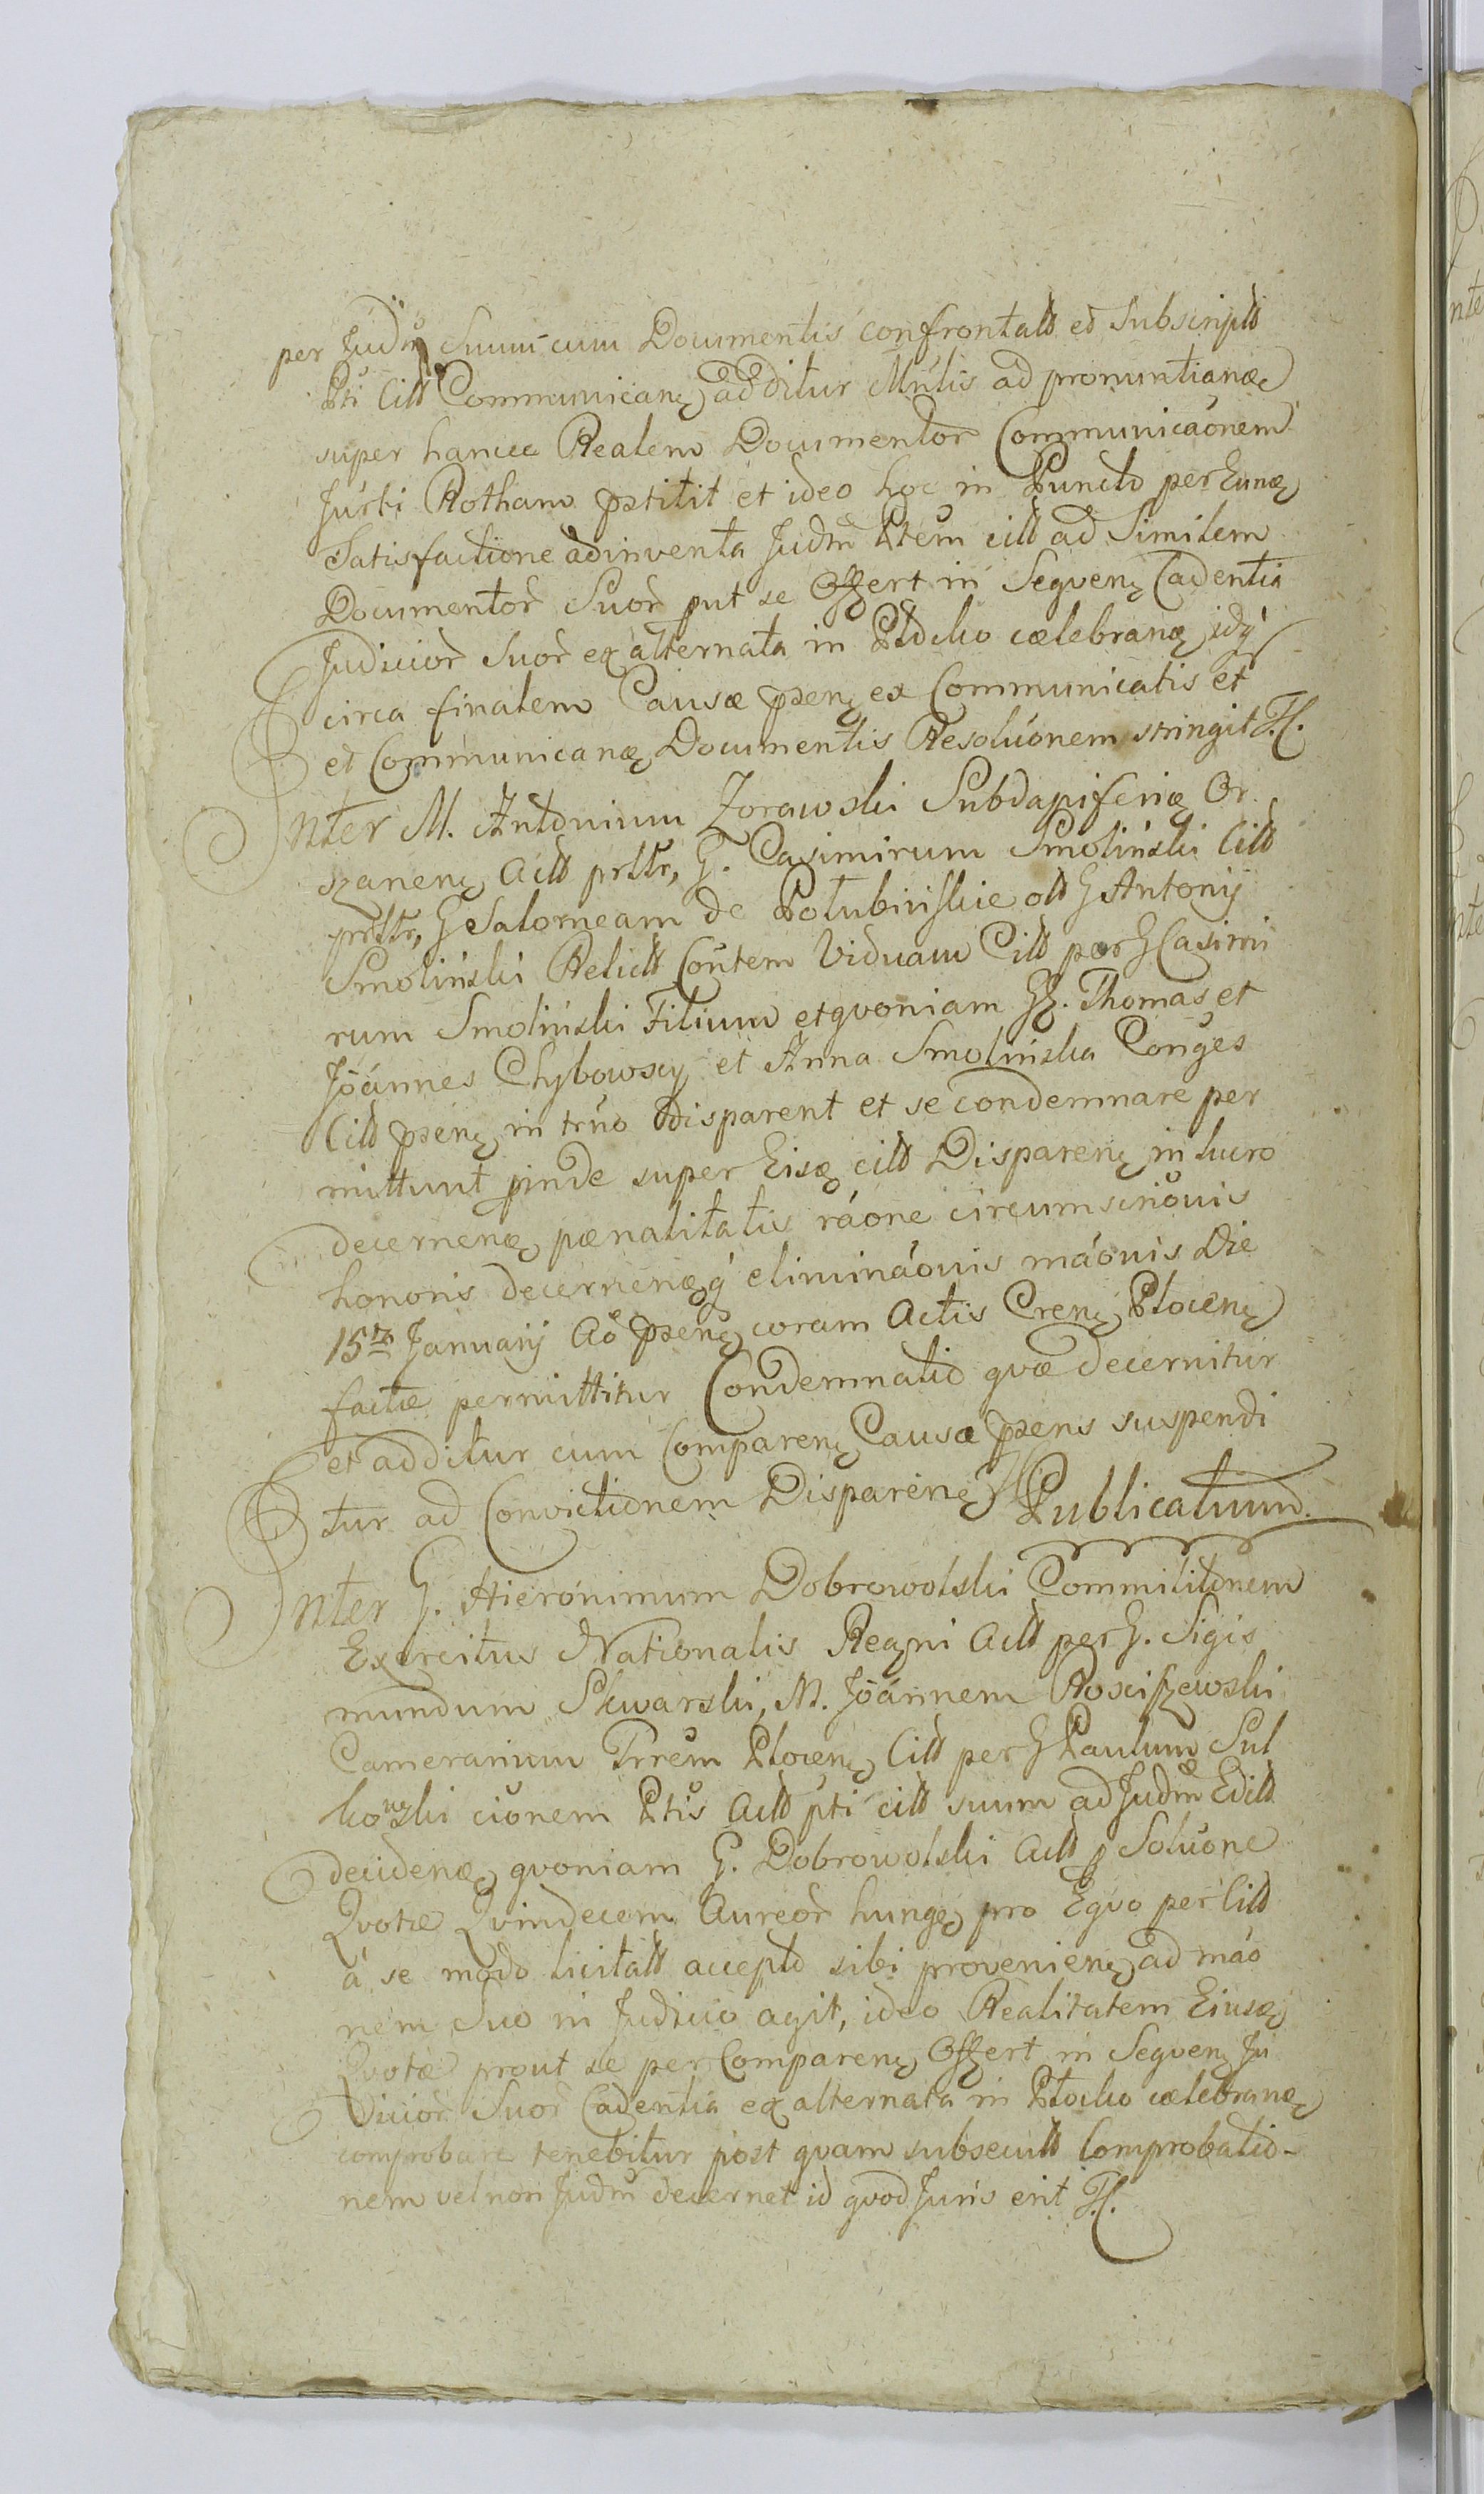 per Judm̃ Suum cum Documentis confrontatt et Subscriptt
Pti Citt Communicanę additur Mnlis ad pronuntianæ
super hancce Realem Documentor̃ Communicãonem
Jurti Rotham pstitit et ideo hoc in Puncto per Eunæ
Satisfactione adinventa Judm̃ Ptem citt ad Similem
Documentor̃ Suor̃ put se Offert in Seqvenę Cadentia
Judicior̃ Suor̃ ex alternata in Plocko cælebranæ idq́
circa finalem Causæ psenę ex Communicatis et
et Communicanæ Documentis Resoluõnem stringit H.
Inter M. Antonium Zorawski Subdapiferiæ Or
szanenę Actt prstr, G. Casimirum Smolinski Citt
prstr, G Salomeam de Połubinskie ott G Antonij
Smolinski Relictt Cõntem Viduam Citt per G Casimi
rum Smolinski Filium et qvoniam GG. Thomas et
Joannes Chybowscy et Anna Smolinska Conges
Citt psenę in trño disparent et se condemnare per
mittunt pinde super Eisæ citt Disparenę in lucro
decernenæ pænalitatis rãone circumscriõnis
honoris decernenæq́ eliminãonis mãonis Die
15ta Januarij Aõ psenę coram Actis Crenę Plocenę
factæ permittitur Condemnatio qvæ decernitur
et additur cum Comparenę Causa psens suspendi
tur ad Convictionem Disparenę Publicatum.
Inter G. Hieronimum Dobrowolski Commilitonem
Exercitus Nationalis Regni Actt per G. Sigis
mundum Skwarski, M. Joannem Rosciszewski
Camerarium Trrem Plocenę Citt per G Paulum Sul
kowski ciõnem Ptis Actt pti citt suum ad Judm̃ Editt
decidenæ qvoniam G. Dobrowolski Actt p Soluõne
Qvotæ Qvindecem Aureor̃ hungę pro Eqvo per Citt
á se modo licitatt accepto sibi provenienę ad mão
nem Suo in Judicio agit, ideo Realitatem Eiusæ
Qvotæ prout se per Comparenę Offert in Seqvenę Ju
dicior̃ Suor̃ Cadentia ex alternata in Plocko cælebranæ
comprobare tenebitur post qvam subsecutt Comprobatio-
nem vel non Judm̃ decernet id qvod Juris erit H.